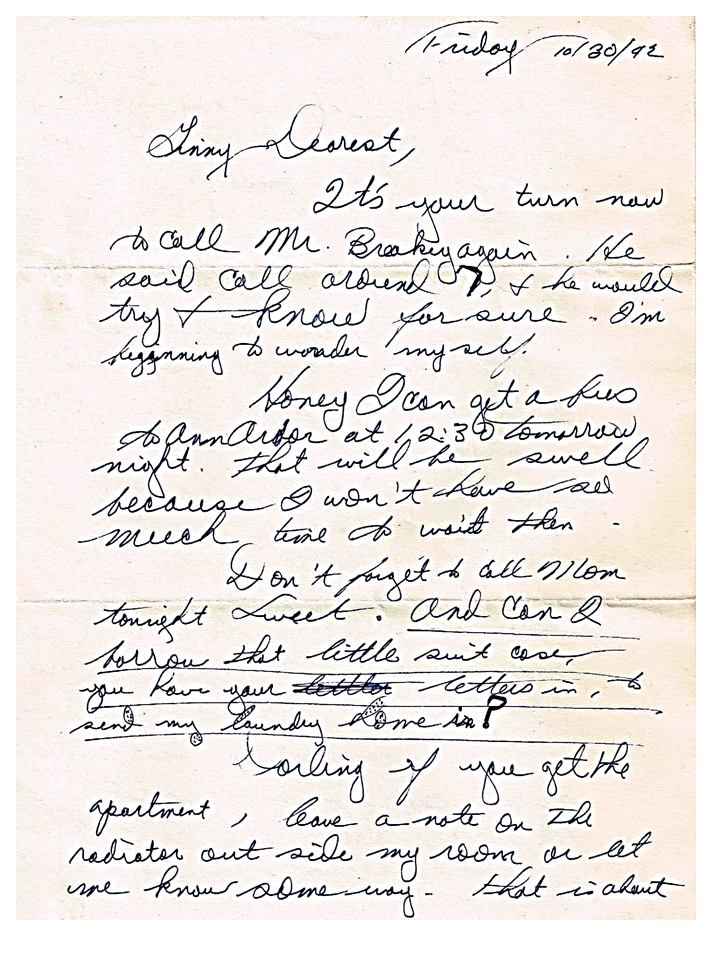 Friday 10/30/42
Ginny Dearest,
It's your turn now
to call Mr. Breakey again. He
said call around 7, & he would
try & know for sure. I'm
beginning to wonder myself.
Honey I can get a bus
to Ann Arbor at 12:30 tomorrow
night. That will be swell
because I won't have so
much time to wait then.
Don't forget to call Mom
tonight Sweet. And Can I
borrow that little suit case,
you have your letters in, to
send my laundry home in?
Darling if you get the
apartment, leave a note on the
radiator out side my room or let
me know some way. That is about